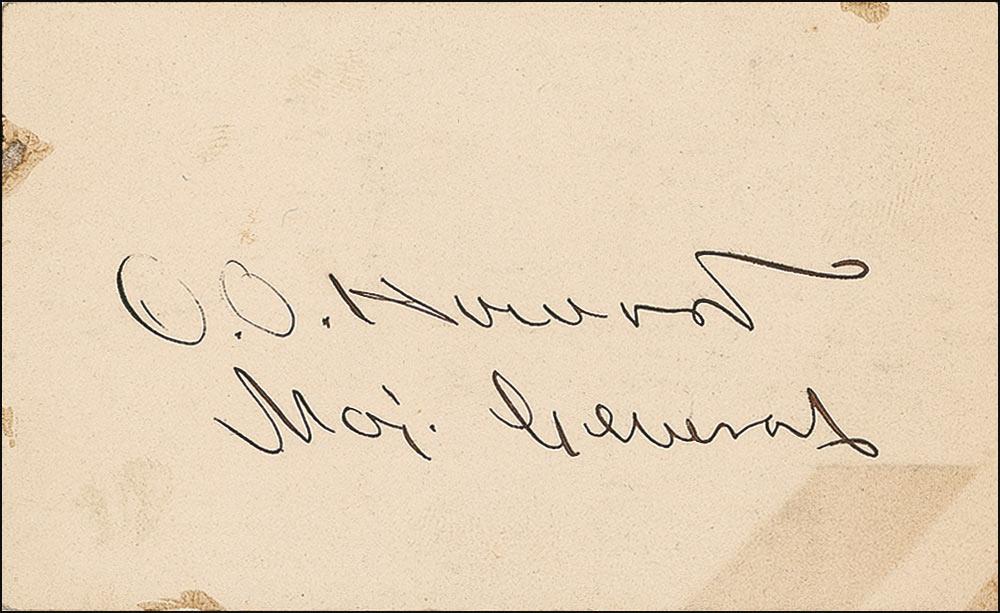 O.O. Howard
Maj. General